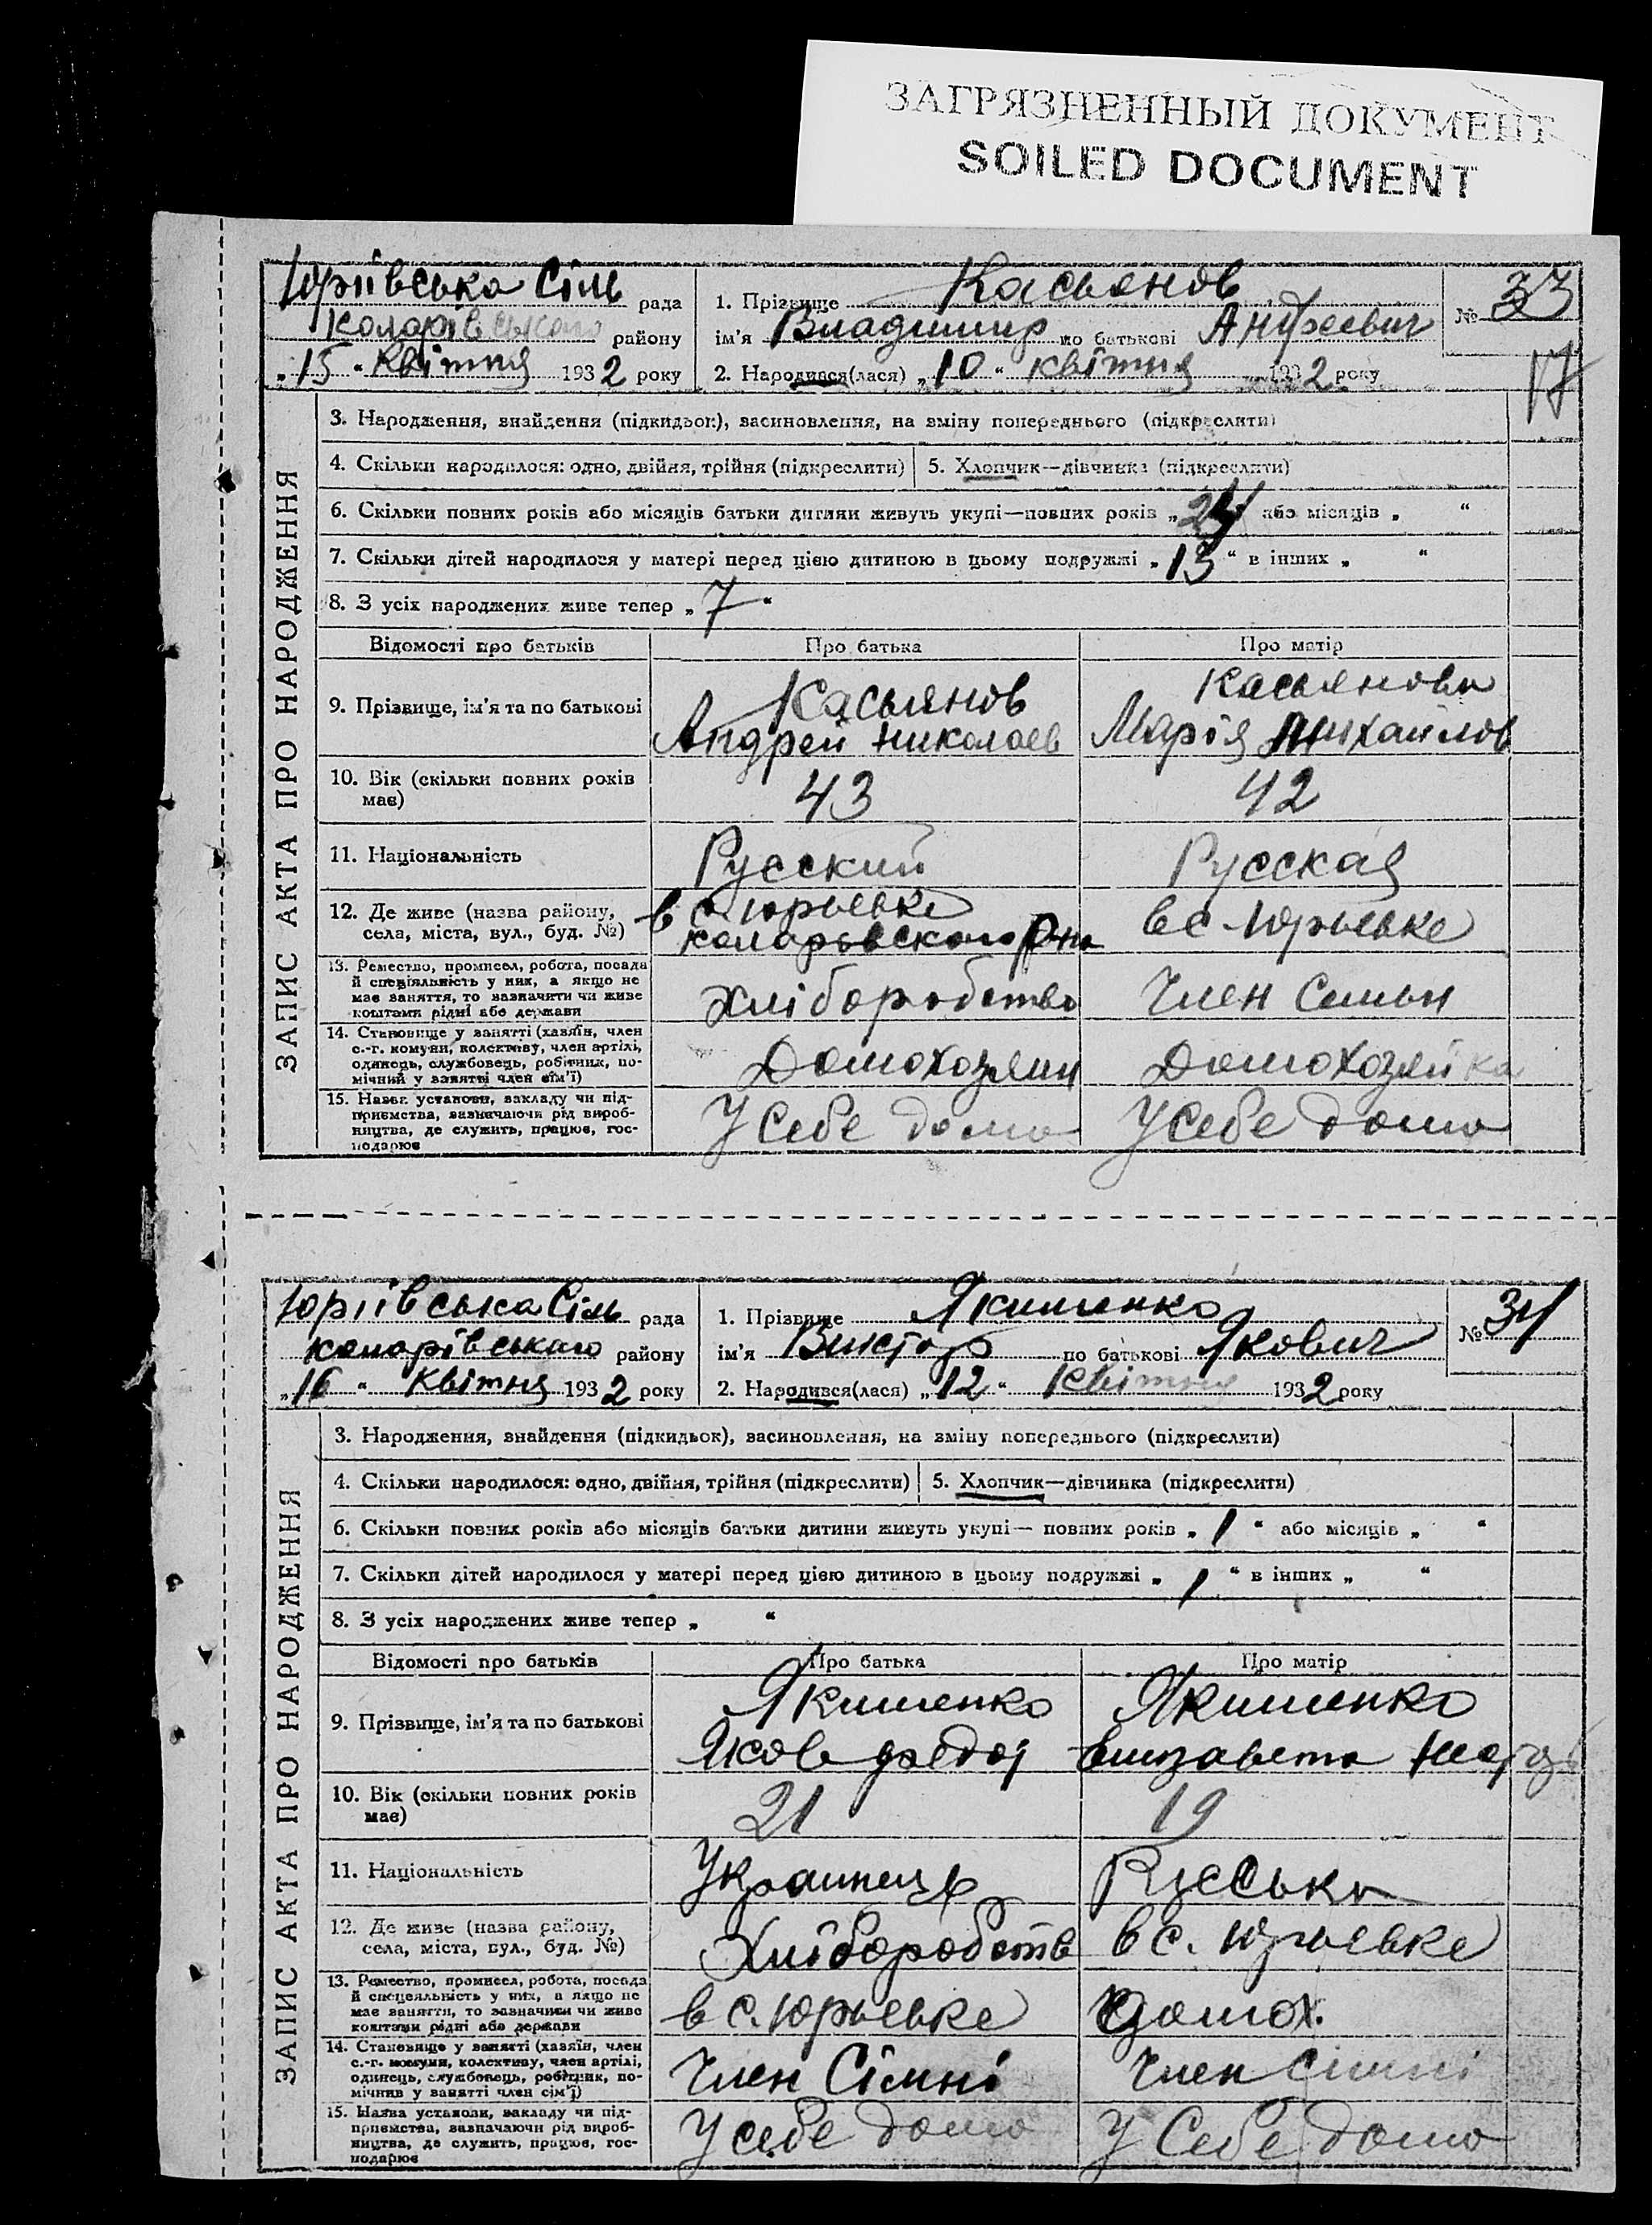 ЗАГРЯЗНЕННЫЙ ДОКУМЕНТ
SOILED DOCUMENT
Юріївська Сіль рада
Коларівського району
„15“ Квітня 1932 року
1. Прізвище Касьянов
ім'я Владимир по батькові Андреевич
2. Народився(лася) „10“ квітня 1932 року
№ 33
17
ЗАПИС АКТА ПРО НАРОДЖЕННЯ
3. Народження, знайдення (підкидьок), засиновлення, на зміну попереднього (підкреслити)
4. Скільки народилося: одно, двійня, трійня (підкреслити) 5. Хлопчик—дівчинка (підкреслити)
6. Скільки повних років або місяців батьки дитини живуть укупі—повних років „24“ або місяців „ “
7. Скільки дітей народилося у матері перед цією дитиною в цьому подружжі „13“ в інших „ “
8. З усіх народжених живе тепер „7“
Відомості про батьків Про батька Про матір
9. Прізвище, ім'я та по батькові
Касьянов
Андрей Николаев
Касьянова
Марія Михайлов
10. Вік (скільки повних років
має)
43
42
11. Національність Русский Русская
12. Де живе (назва району,
села, міста, вул., буд. №)
в с. Юрьевке
коларовского р-на
в с. Юрьевке
13. Ремество, промисел, робота, посада
й спеціяльність у них, а якщо не
має заняття, то зазначити чи живе
коштами рідні або держави
Хліборобство
Член Семьи
14. Становище у занятті (хазяїн, член
с.-г. комуни, колективу, член артілі,
одинець, службовець, робітник, по-
мічний у занятті член сім'ї)
Домохозяин
Домохозяйка
15. Назва установи, закладу чи під-
приємства, зазначаючи рід вироб-
ництва, де служить, працює, гос-
подарює
У себе дома
У себе дома
Юріївська Сіль рада
коларівського району
„16“ Квітня 1932 року
1. Прізвище Якименко
ім'я Виктор по батькові Якович
2. Народився(лася) „12“ Квітня 1932 року
№ 34
ЗАПИС АКТА ПРО НАРОДЖЕННЯ
3. Народження, знайдення (підкидьок), засиновлення, на зміну попереднього (підкреслити)
4. Скільки народилося: одно, двійня, трійня (підкреслити) 5. Хлопчик—дівчинка (підкреслити)
6. Скільки повних років або місяців батьки дитини живуть укупі— повних років „1“ або місяців „ “
7. Скільки дітей народилося у матері перед цією дитиною в цьому подружжі „1“ в інших „ “
8. З усіх народжених живе тепер „ “
Відомості про батьків Про батька Про матір
9. Прізвище, ім'я та по батькові
Якименко
Яков Федор
Якименко
Елизавета
10. Вік (скільки повних років
має)
21
19
11. Національність Украинець Руська
12. Де живе (назва району,
села, міста, вул., буд. №)
Хліборобств
в с. Юрьевке
13. Ремество, промисел, робота, посада
й спецеяльність у них, а якщо не
має заняття, то зазначити чи живе
коштами рідні або держави
в с. Юрьевке
домох.
14. Становище у занятті (хазяїн, член
с.-г. комуни, колективу, член артілі,
одинець, службовець, робітник, по-
мічник у занятті член сім'ї)
Член Сімні
Член Сімні
15. Назва установи, закладу чи під-
приємства, зазначаючи рід вироб-
ництва, де служить, працює, гос-
подарює
У себе дома
У Себе дома